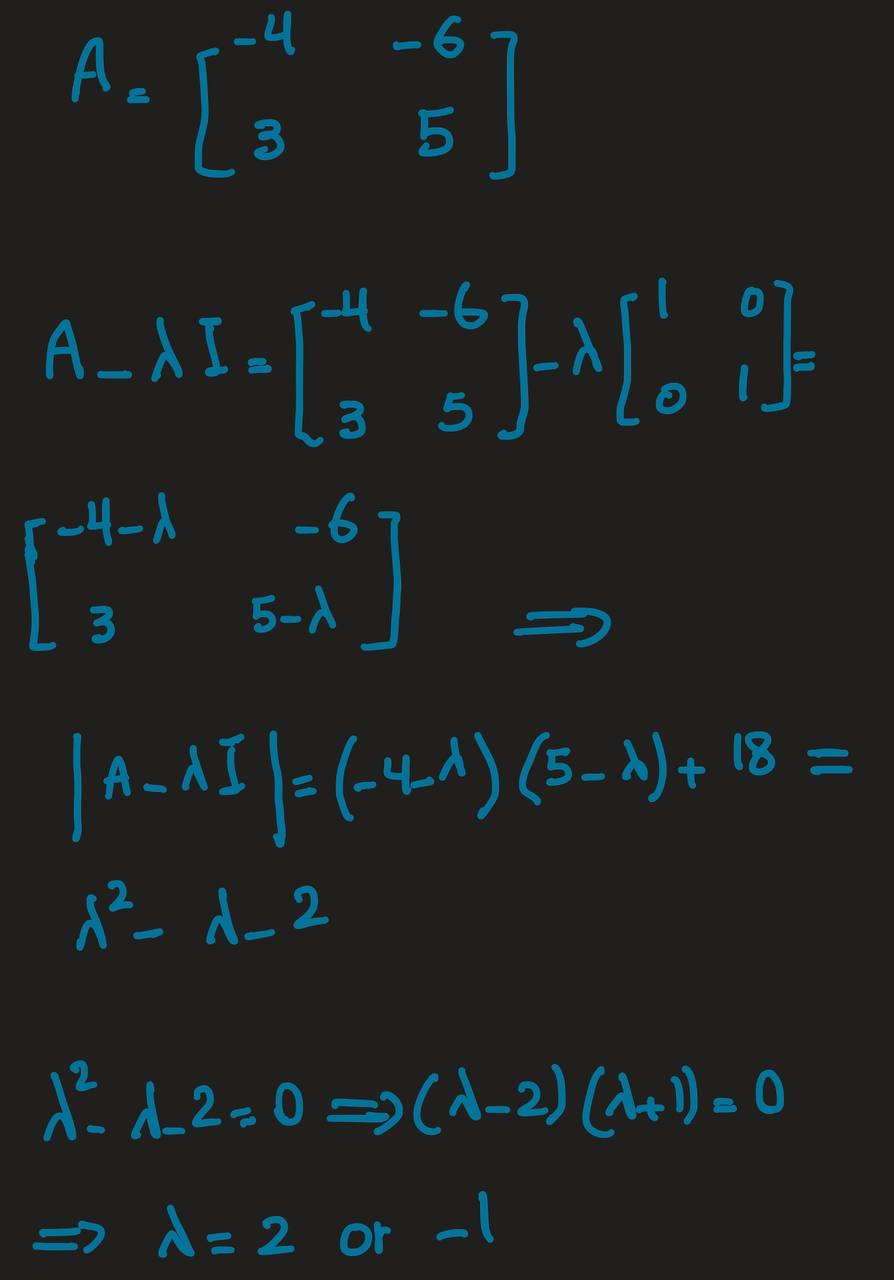 A = [ -4 -6
3 5 ]
A - λ I = [ -4 -6 ] - λ [ 1 0 ] =
3 5 0 1
[ -4-λ -6 ]
3 5-λ ⟹
| A - λI | = (-4-λ) (5-λ) + 18 =
λ² - λ - 2
λ² - λ - 2 = 0 ⟹ (λ-2) (λ+1) = 0
⟹ λ = 2 or -1